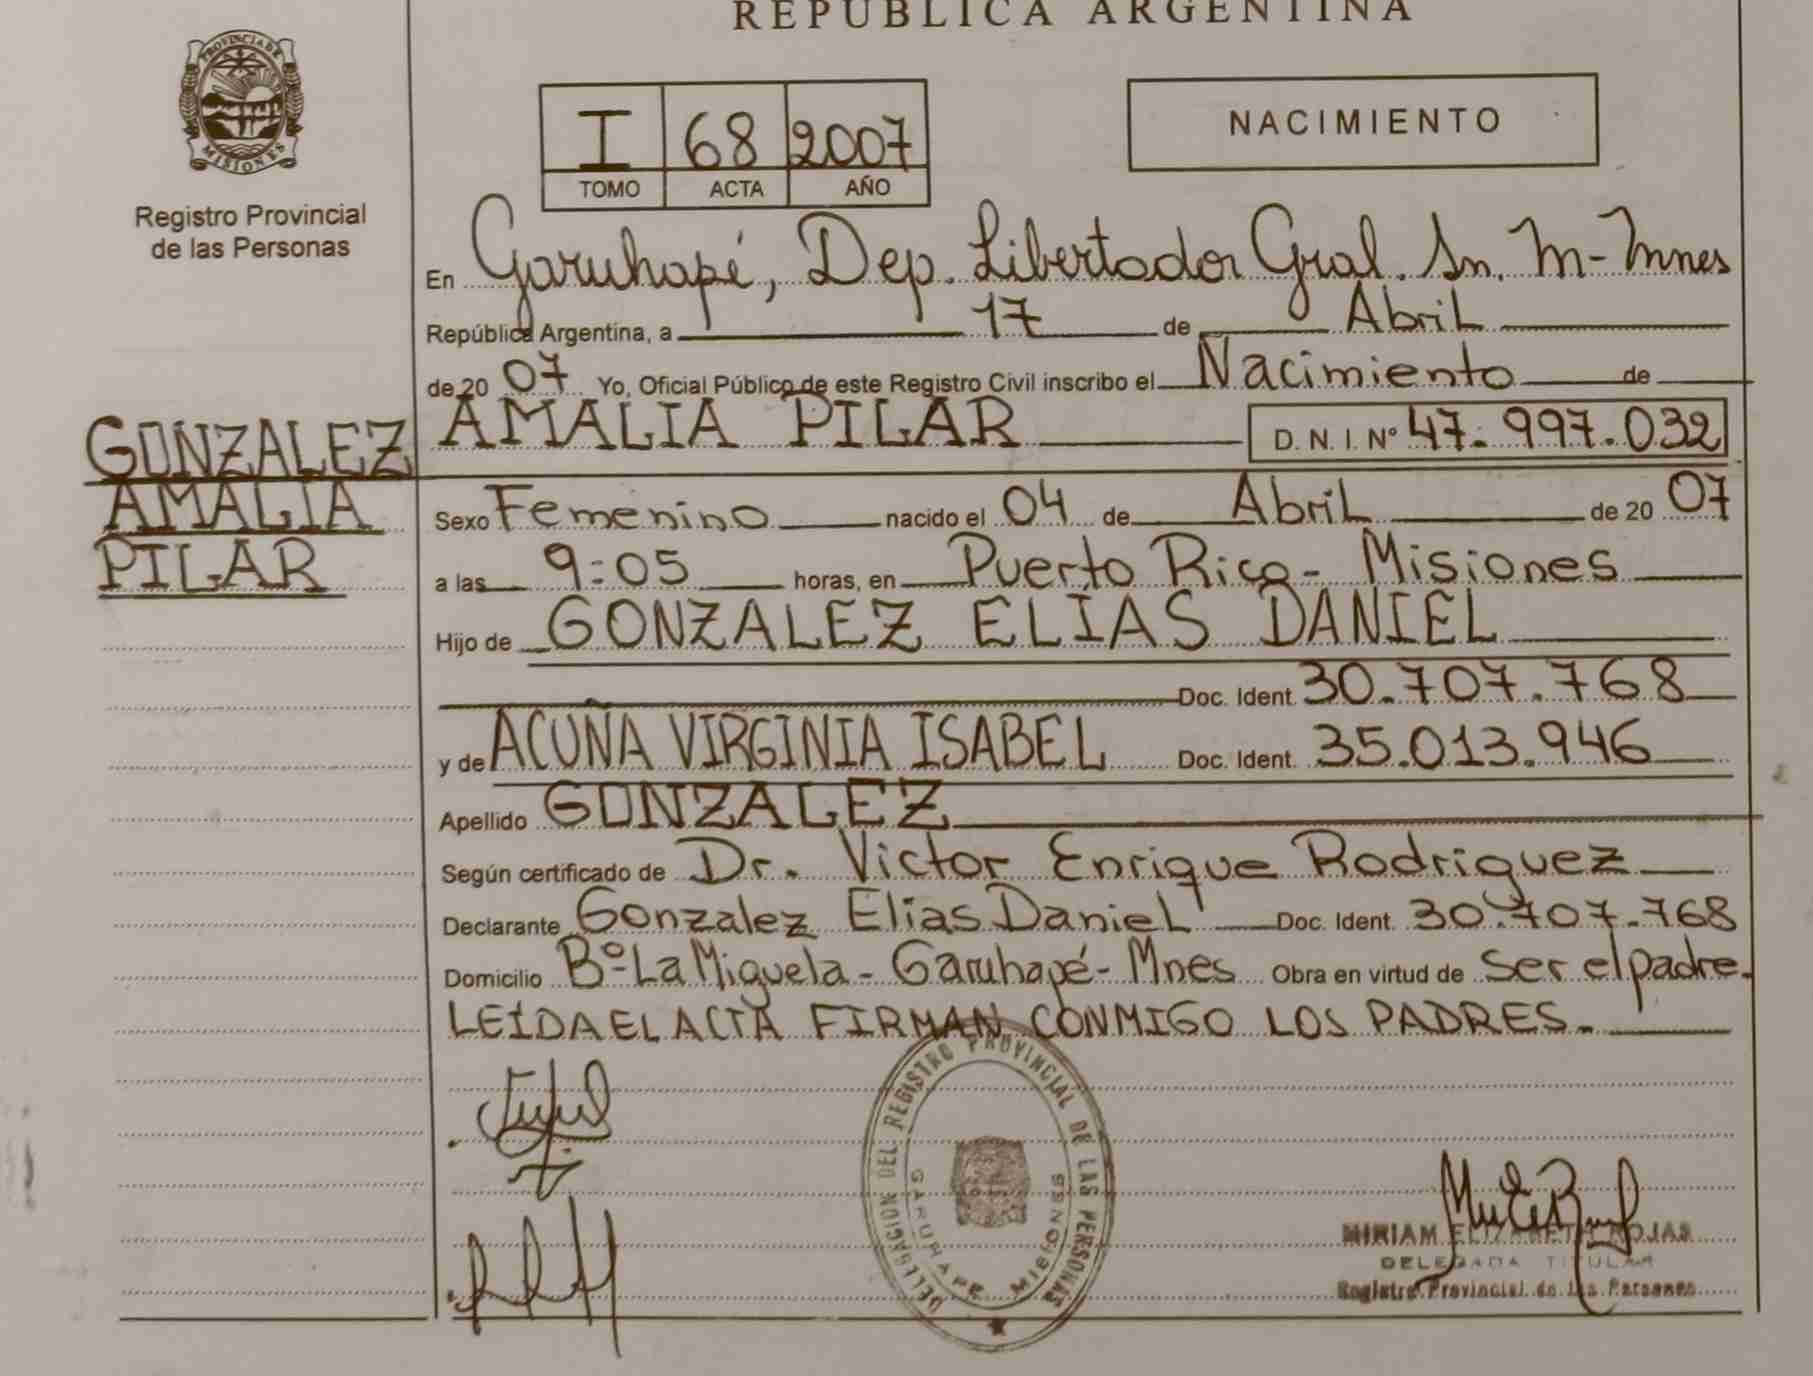 REPUBLICA ARGENTINA
PROVINCIA DE
MISIONES
Registro Provincial
de las Personas
I 68 2007
TOMO ACTA AÑO
NACIMIENTO
En Garuhapé, Dep. Libertador Gral. Sn. M-Mnes
República Argentina, a 17 de Abril
de 20 07 Yo, Oficial Público de este Registro Civil inscribo el Nacimiento de
GONZALEZ
AMALIA
PILAR
AMALIA PILAR D. N. I. Nº 47.997.032
Sexo Femenino nacido el 04 de Abril de 20 07
a las 9:05 horas, en Puerto Rico - Misiones
Hijo de GONZALEZ ELÍAS DANIEL
Doc. Ident. 30.707.768
y de ACUÑA VIRGINIA ISABEL Doc. Ident. 35.013.946
Apellido GONZALEZ
Según certificado de Dr. Victor Enrique Rodriguez
Declarante Gonzalez Elias Daniel Doc. Ident. 30.707.768
Domicilio Bº La Miguela - Garuhapé - Mnes Obra en virtud de Ser el padre.
LEÍDA EL ACTA FIRMAN CONMIGO LOS PADRES.
DELEGACION DEL REGISTRO PROVINCIAL DE LAS PERSONAS
GARUHAPE MISIONES
MIRIAM ELIZABETH ROJAS
DELEGADA TITULAR
Registro Provincial de las Personas